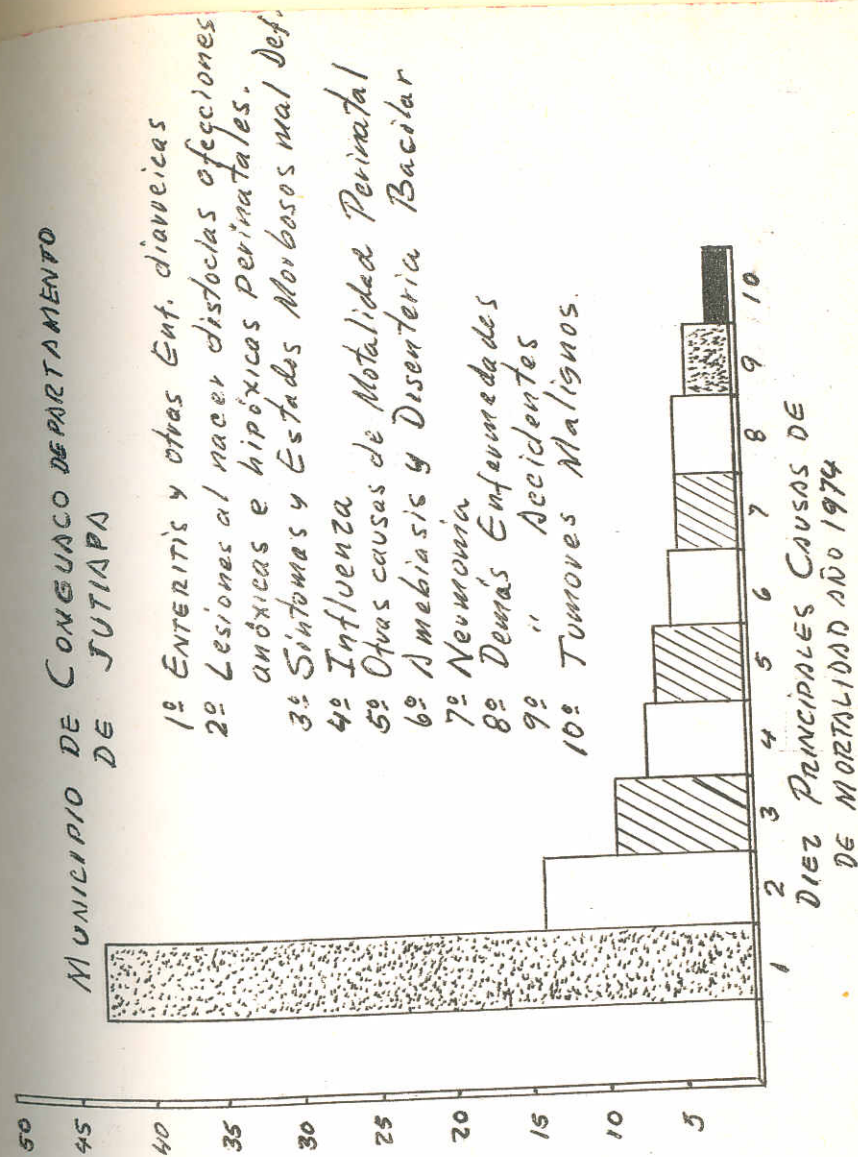 MUNICIPIO DE CONGUACO DEPARTAMENTO
DE JUTIAPA
1º ENTERITIS y otras Enf. diarreicas
2º Lesiones al nacer distocias afecciones
anóxicas e hipóxicas perinatales.
3º Síntomas y Estados Morbosos mal Def.
4º Influenza
5º Otras causas de Motalidad Perinatal
6º Amebiasis y Disenteria Bacilar
7º Neumonia
8º Demás Enfermedades
9º " Accidentes
10º Tumores Malignos.
50
45
40
35
30
25
20
15
10
5
1 2 3 4 5 6 7 8 9 10
DIEZ PRINCIPALES CAUSAS DE
DE MORTALIDAD AÑO 1974